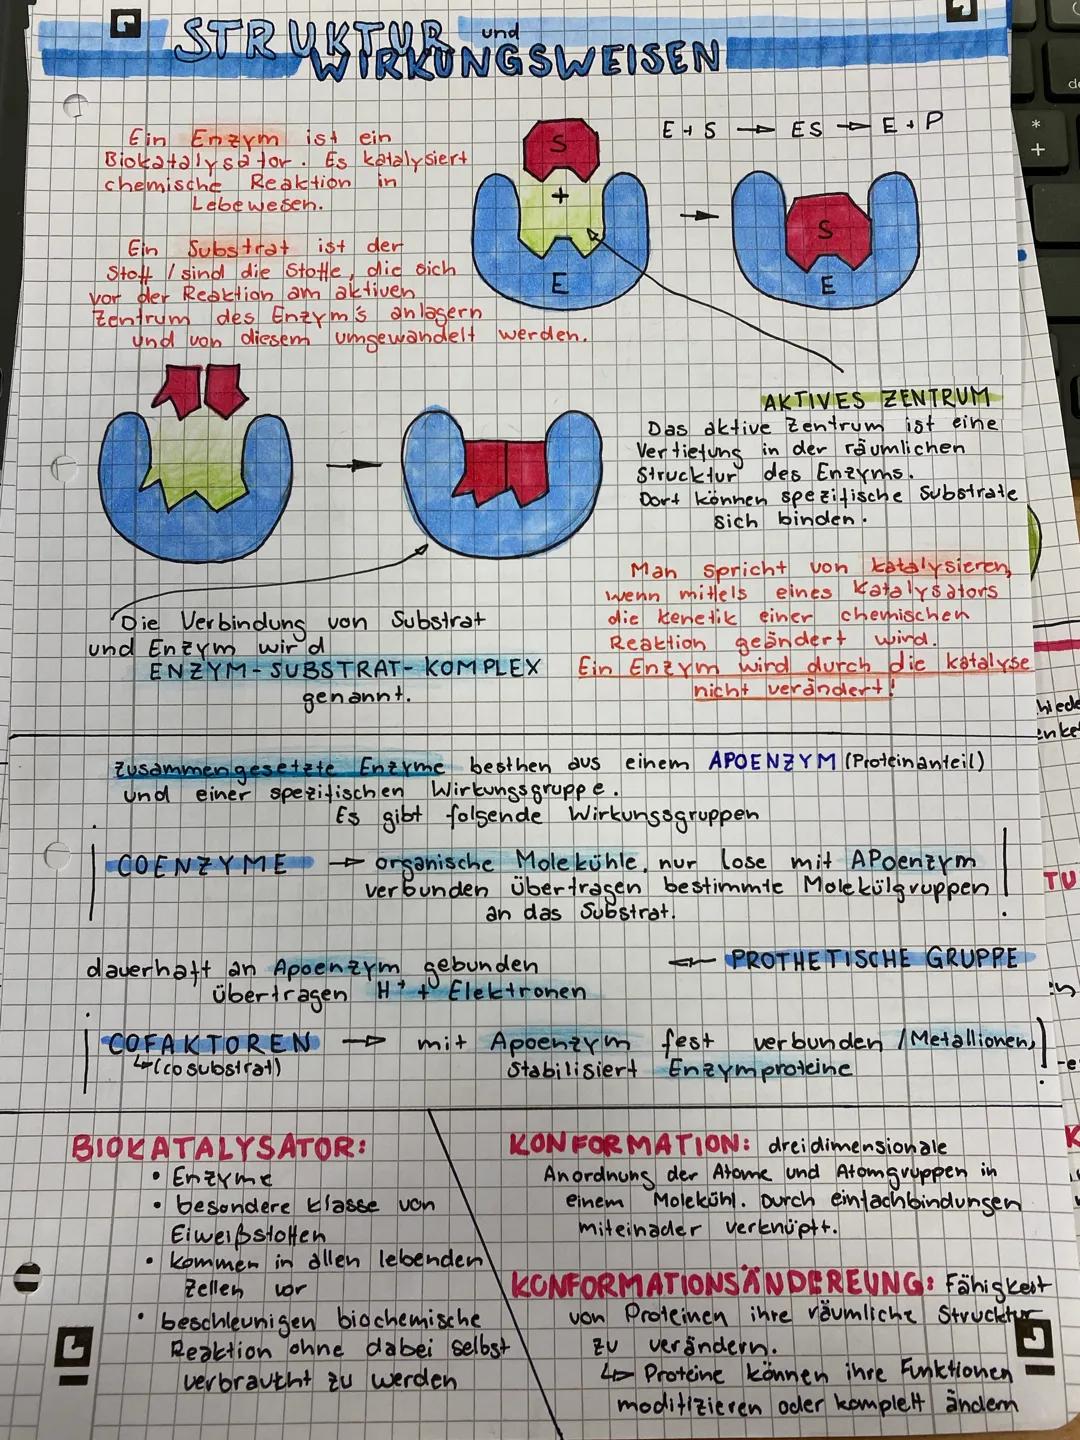 STRUKTUR und
WIRKUNGSWEISEN
Ein Enzym ist ein
Biokatalysator. Es katalysiert
chemische Reaktion in
Lebewesen.
Ein Substrat ist der
Stoff / sind die Stoffe, die sich
vor der Reaktion am aktiven
Zentrum des Enzym's anlagern
und von diesem umgewandelt werden.
E + S → ES → E + P
S
+
E
S
E
AKTIVES ZENTRUM
Das aktive Zentrum ist eine
Vertiefung in der räumlichen
Strucktur des Enzyms.
Dort können spezifische Substrate
sich binden.
Man spricht von katalysieren,
wenn mittels eines Katalysators
die kenetik einer chemischen
Reaktion geändert wird.
Ein Enzym wird durch die katalyse
nicht verändert!
Die Verbindung von Substrat
und Enzym wird
ENZYM-SUBSTRAT-KOMPLEX
genannt.
Zusammengesetzte Enzyme besthen aus einem APOENZYM (Proteinanteil)
und einer spezifischen Wirkungsgruppe.
Es gibt folgende Wirkungsgruppen
COENZYME → organische Moleküehle, nur lose mit APoenzym
verbunden übertragen bestimmte Molekülgruppen
an das Substrat.
dauerhaft an Apoenzym gebunden ← PROTHETISCHE GRUPPE
übertragen H⁺ + Elektronen
COFAKTOREN → mit Apoenzym fest verbunden / Metallionen,
↳(cosubstrat) Stabilisiert Enzymproteine
BIOKATALYSATOR:
• Enzyme
• besondere klasse von
Eiweißstoffen
• kommen in allen lebenden
Zellen vor
• beschleunigen biochemische
Reaktion ohne dabei selbst
verbraucht zu werden
KONFORMATION: dreidimensionale
Anordnung der Atome und Atomgruppen in
einem Moleküehl. Durch einfachbindungen
miteinader verknüpft.
KONFORMATIONSÄNDEREUNG: Fähigkeit
von Proteinen ihre räumliche Strucktur
zu verändern.
↳ Proteine können ihre Funktionen
modifizieren oder komplett ändern